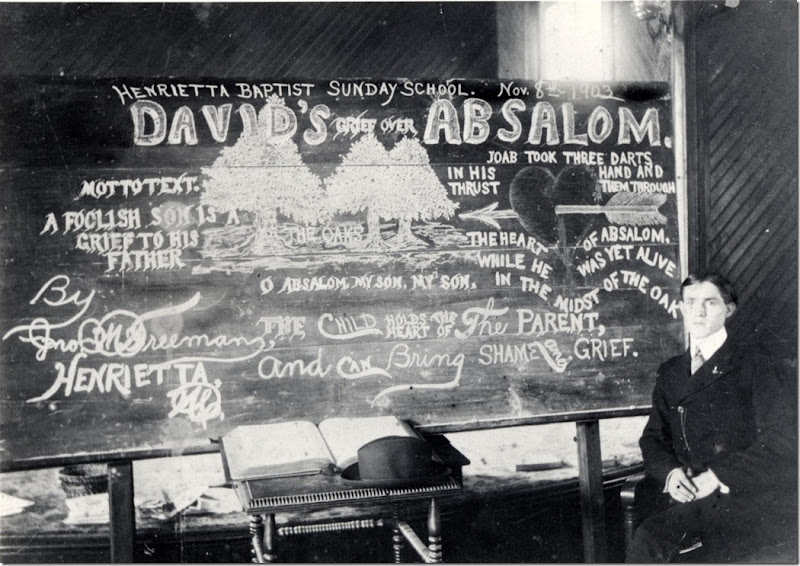 HENRIETTA BAPTIST SUNDAY SCHOOL. NOV. 8TH 1903
DAVID'S GRIEF OVER ABSALOM.
MOTTO TEXT.
A FOOLISH SON IS A
GRIEF TO HIS
FATHER
THE OAKS
JOAB TOOK THREE DARTS
IN HIS HAND AND
THRUST THEM THROUGH
THE HEART OF ABSALOM.
WHILE HE WAS YET ALIVE
IN THE MIDST OF THE OAK
O ABSALOM, MY SON, MY SON.
By
Jno. M. Freemans,
HENRIETTA,
THE CHILD HOLDS THE HEART OF The PARENT,
and CAN Bring SHAME and GRIEF.